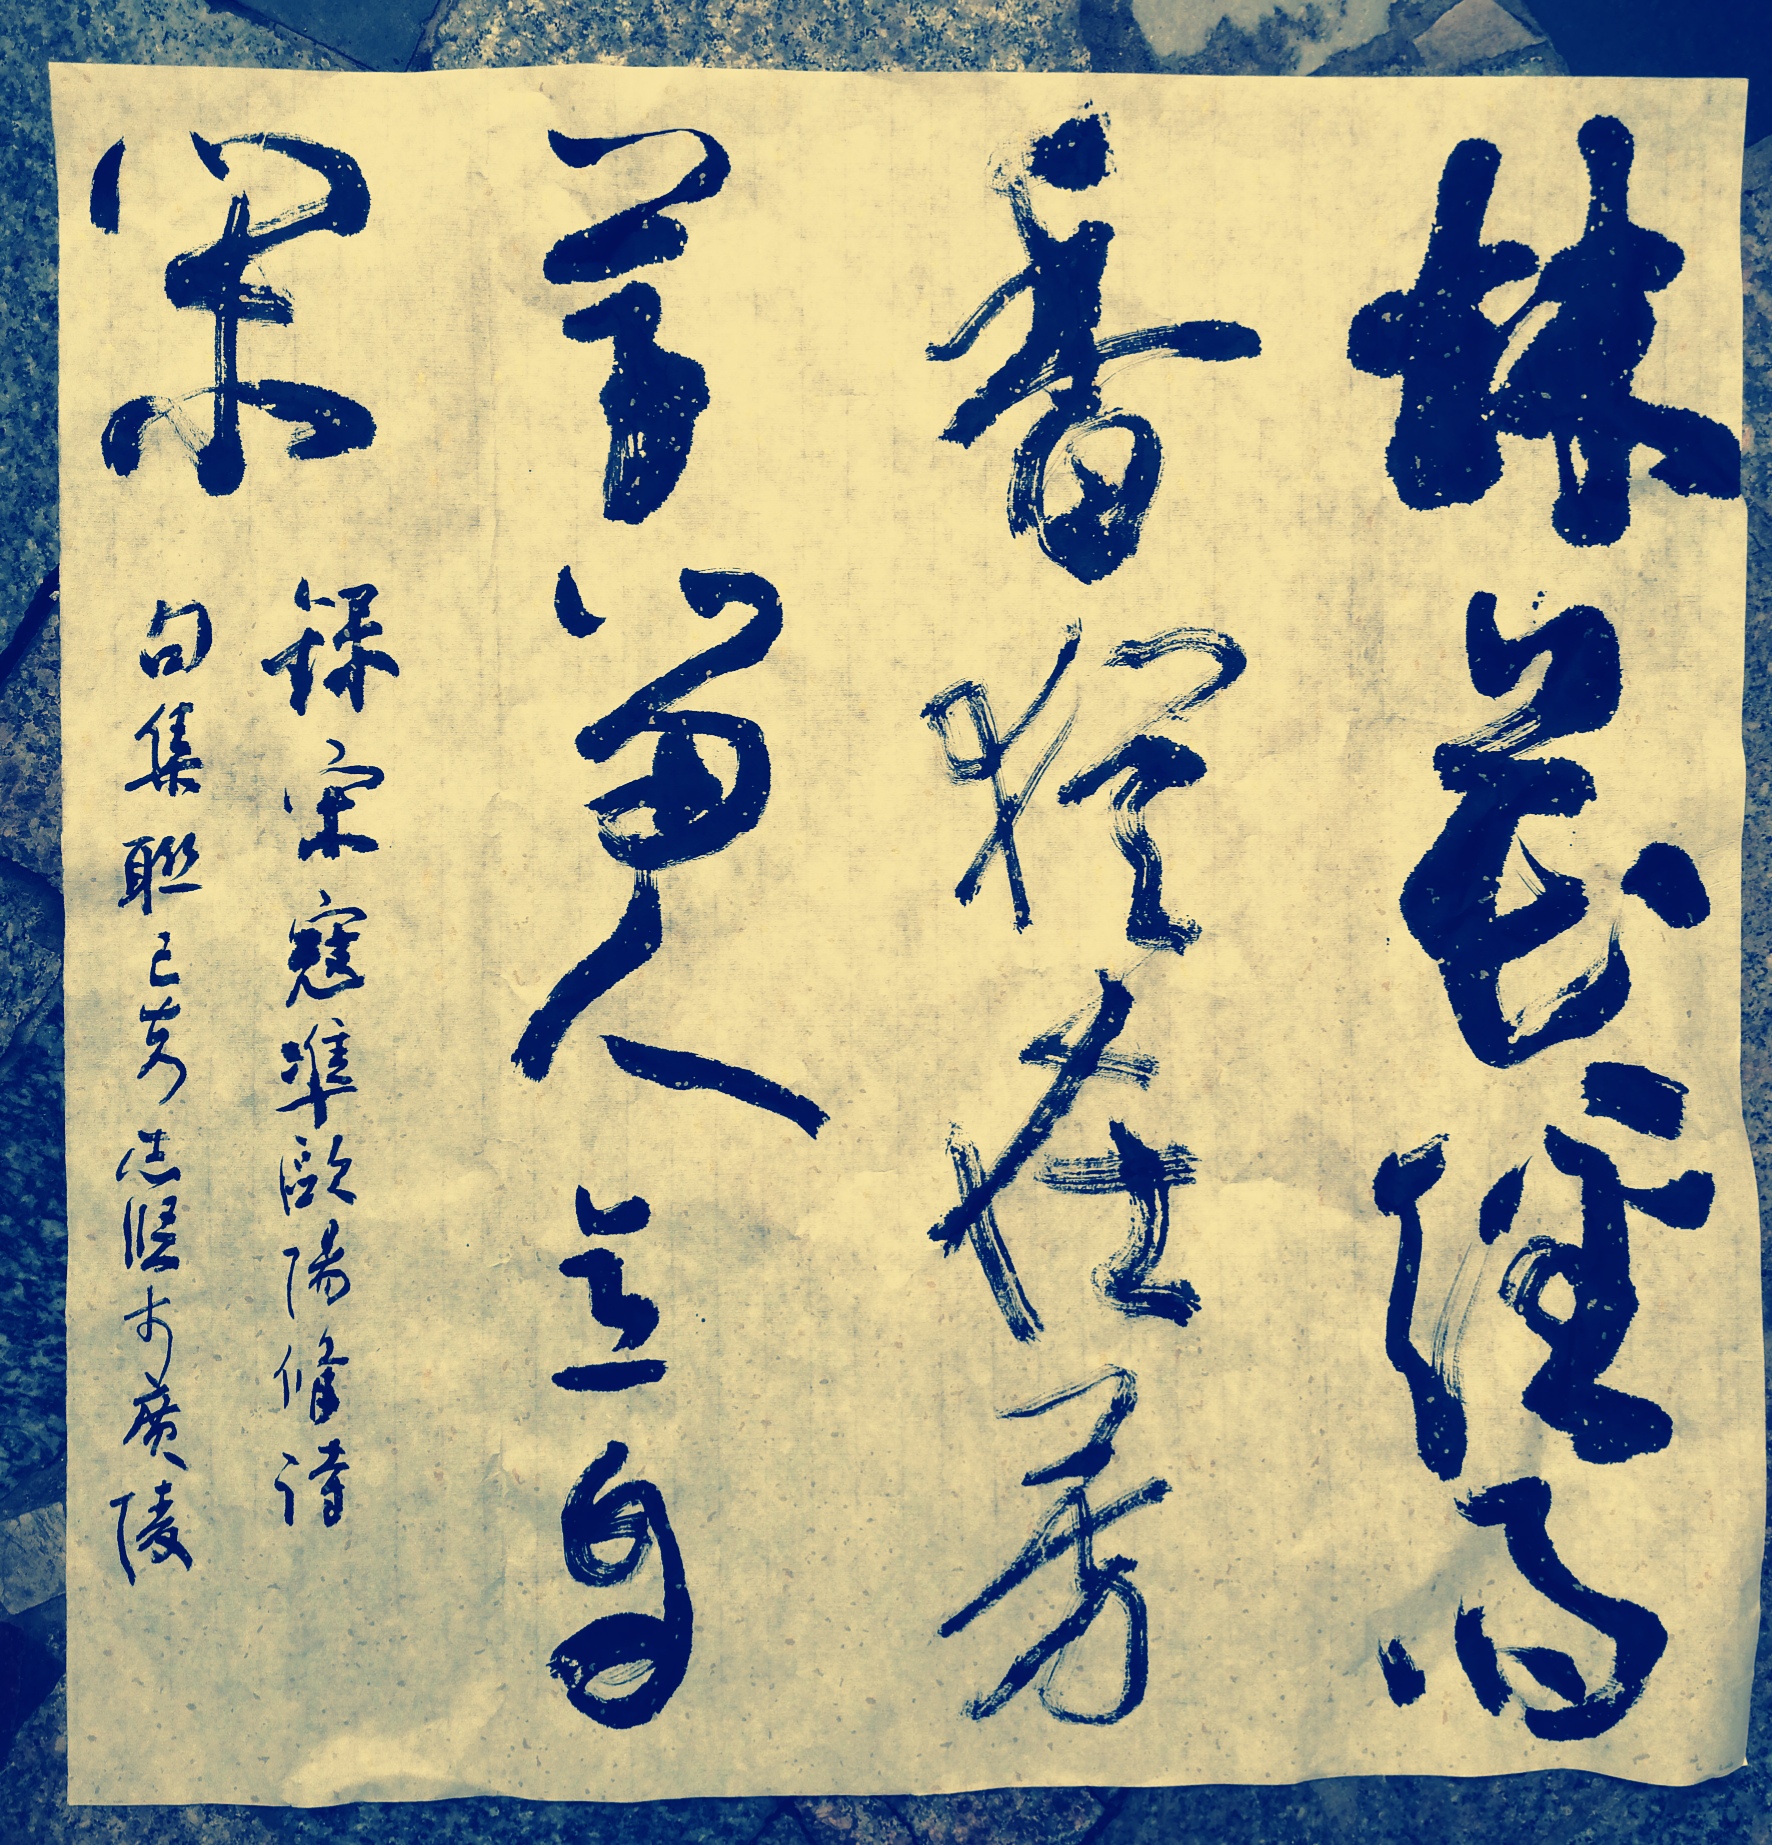 林花經雨
香猶在芳
草留人意自
閑
錄宋寇準歐陽脩詩
句集聯己亥志堅於廣陵